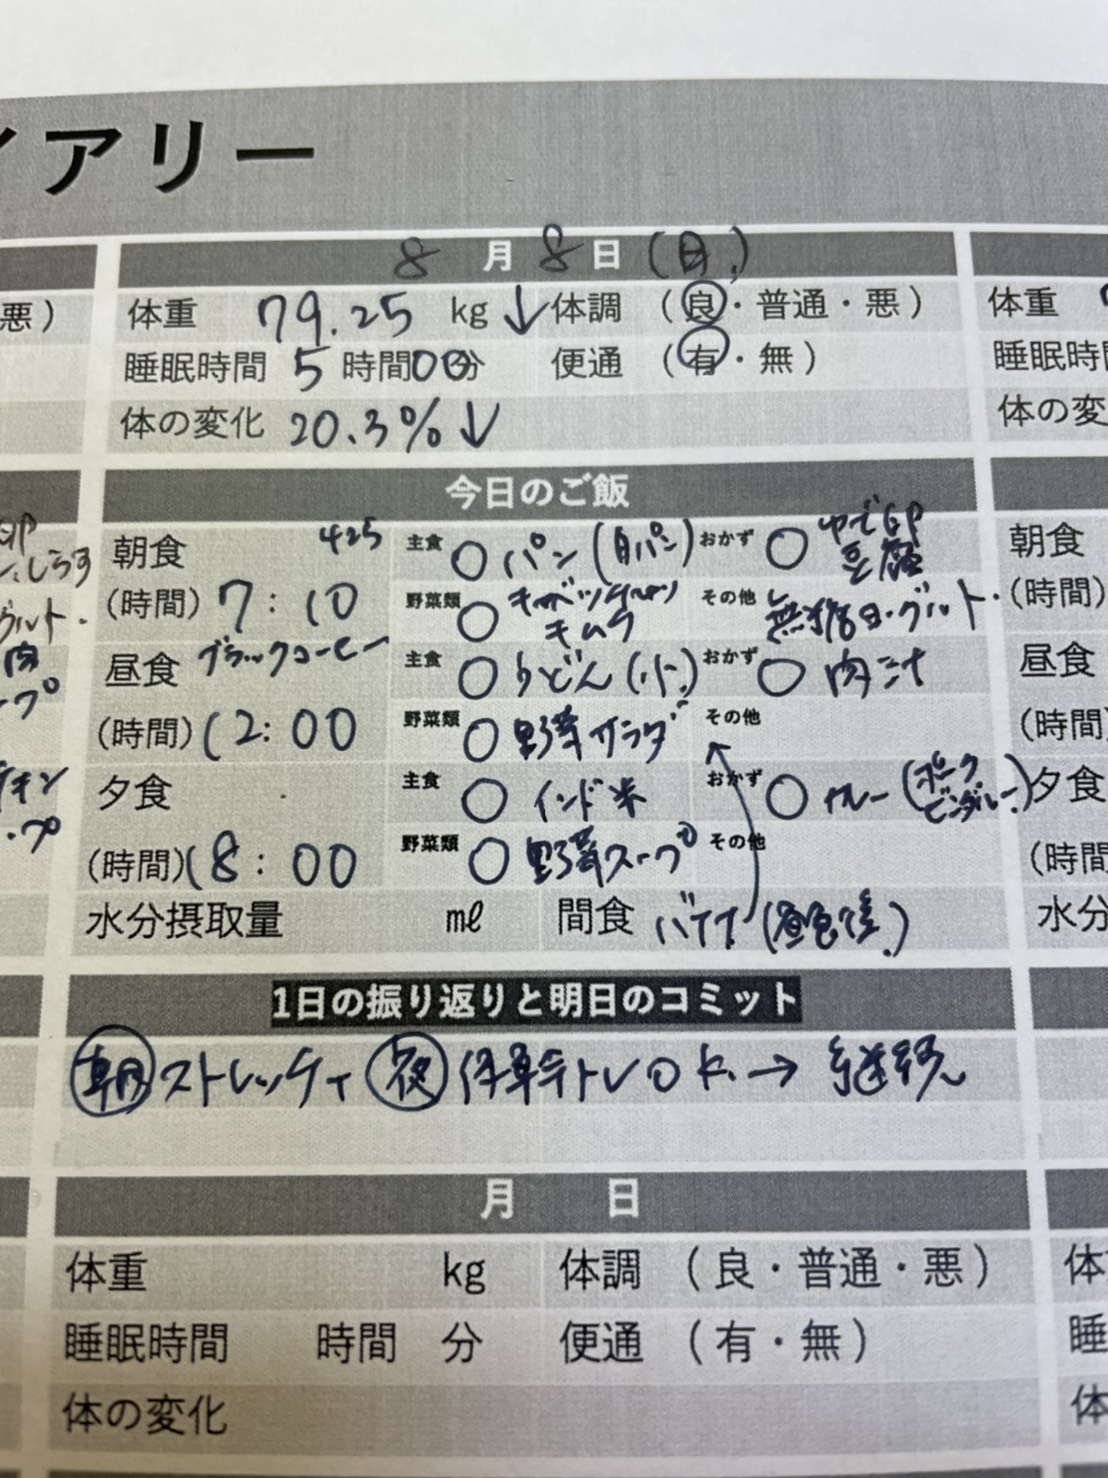 イアリー
8月8日(日)
悪)
体重 79.25 kg↓ 体調 (良・普通・悪)
体重
睡眠時間 5時間00分 便通 (有・無)
睡眠時
体の変化 20.3%↓
体の変
今日のご飯
朝食 425 主食 ○ パン(白パン) おかず ○ ゆで卵 豆腐
しらす
朝食
(時間) 7:10 野菜類 ○ キムチ その他 無糖ヨーグルト
(時間)
昼食 ブラックコーヒー 主食 ○ うどん(小) おかず ○ 肉汁
昼食
(時間) 12:00 野菜類 ○ 野菜サラダ その他
(時間)
夕食 主食 ○ インド米 おかず ○ カレー(ポークビンダルー)
夕食
(時間) 18:00 野菜類 ○ 野菜スープ その他
(時間
水分摂取量 ㎖ 間食 (昼食後)
水分
1日の振り返りと明日のコミット
朝ストレッチ、夜 体幹トレOK.→継続
月 日
体重 kg 体調 (良・普通・悪)
体
睡眠時間 時間 分 便通 (有・無)
睡
体の変化
体